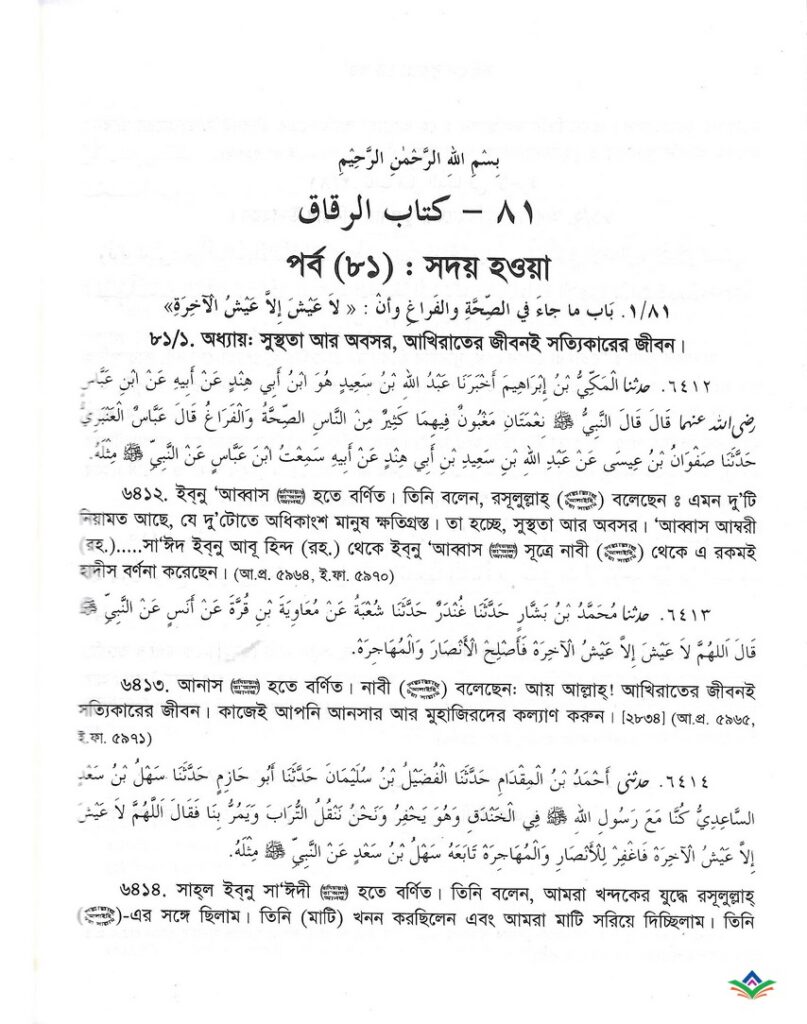 بِسْمِ اللهِ الرَّحْمٰنِ الرَّحِيْمِ
٨١ – كتاب الرقاق
পর্ব (৮১) : সদয় হওয়া
١/٨١. بَاب مَا جَاءَ فِي الصِّحَّةِ وَالْفَرَاغِ وَأَنْ : « لَا عَيْشَ إِلَّا عَيْشُ الْآخِرَةِ»
৮১/১. অধ্যায়ঃ সুস্থতা আর অবসর, আখিরাতের জীবনই সত্যিকারের জীবন।
٦٤١٢. حدثنا الْمَكِّيُّ بْنُ إِبْرَاهِيمَ أَخْبَرَنَا عَبْدُ اللهِ بْنُ سَعِيدٍ هُوَ ابْنُ أَبِي هِنْدٍ عَنْ أَبِيهِ عَنْ ابْنِ عَبَّاسٍ
رضى الله عنهما قَالَ قَالَ النَّبِيُّ ﷺ نِعْمَتَانِ مَغْبُونٌ فِيهِمَا كَثِيرٌ مِنَ النَّاسِ الصِّحَّةُ وَالْفَرَاغُ قَالَ عَبَّاسٌ الْعَنْبَرِيُّ
حَدَّثَنَا صَفْوَانُ بْنُ عِيسَى عَنْ عَبْدِ اللهِ بْنِ سَعِيدِ بْنِ أَبِي هِنْدٍ عَنْ أَبِيهِ سَمِعْتُ ابْنَ عَبَّاسٍ عَنْ النَّبِيِّ ﷺ مِثْلَهُ.
৬৪১২. ইব্‌নু ‘আব্বাস হতে বর্ণিত। তিনি বলেন, রসূলুল্লাহ্ () বলেছেন ঃ এমন দু’টি
নিয়ামত আছে, যে দু’টোতে অধিকাংশ মানুষ ক্ষতিগ্রস্ত। তা হচ্ছে, সুস্থতা আর অবসর। ‘আব্বাস আম্বরী
(রহ.).....সা‘ঈদ ইব্‌নু আবূ হিন্দ (রহ.) থেকে ইব্‌নু ‘আব্বাস সূত্রে নাবী () থেকে এ রকমই
হাদীস বর্ণনা করেছেন। (আ.প্র. ৫৯৬৪, ই.ফা. ৫৯৭০)
٦٤١٣. حدثنا مُحَمَّدُ بْنُ بَشَّارٍ حَدَّثَنَا غُنْدَرٌ حَدَّثَنَا شُعْبَةُ عَنْ مُعَاوِيَةَ بْنِ قُرَّةَ عَنْ أَنَسٍ عَنْ النَّبِيِّ ﷺ
قَالَ اَللهُمَّ لَا عَيْشَ إِلَّا عَيْشُ الْآخِرَةْ فَأَصْلِحْ الْأَنْصَارَ وَالْمُهَاجِرَةْ.
৬৪১৩. আনাস হতে বর্ণিত। নাবী () বলেছেনঃ আয় আল্লাহ্! আখিরাতের জীবনই
সত্যিকারের জীবন। কাজেই আপনি আনসার আর মুহাজিরদের কল্যাণ করুন। [২৮৩৪] (আ.প্র. ৫৯৬৫,
ই.ফা. ৫৯৭১)
٦٤١٤. حدثني أَحْمَدُ بْنُ الْمِقْدَامِ حَدَّثَنَا الْفُضَيْلُ بْنُ سُلَيْمَانَ حَدَّثَنَا أَبُو حَازِمٍ حَدَّثَنَا سَهْلُ بْنُ سَعْدٍ
السَّاعِدِيُّ كُنَّا مَعَ رَسُولِ اللهِ ﷺ فِي الْخَنْدَقِ وَهُوَ يَحْفِرُ وَنَحْنُ نَنْقُلُ التُّرَابَ وَيَمُرُّ بِنَا فَقَالَ اَللَّهُمَّ لَا عَيْشَ
إِلَّا عَيْشُ الْآخِرَةْ فَاغْفِرْ لِلْأَنْصَارِ وَالْمُهَاجِرَةْ تَابَعَهُ سَهْلُ بْنُ سَعْدٍ عَنْ النَّبِيِّ ﷺ مِثْلَهُ.
৬৪১৪. সাহ্‌ল ইব্‌নু সা‘ঈদী হতে বর্ণিত। তিনি বলেন, আমরা খন্দকের যুদ্ধে রসূলুল্লাহ্
()-এর সঙ্গে ছিলাম। তিনি (মাটি) খনন করছিলেন এবং আমরা মাটি সরিয়ে দিচ্ছিলাম। তিনি